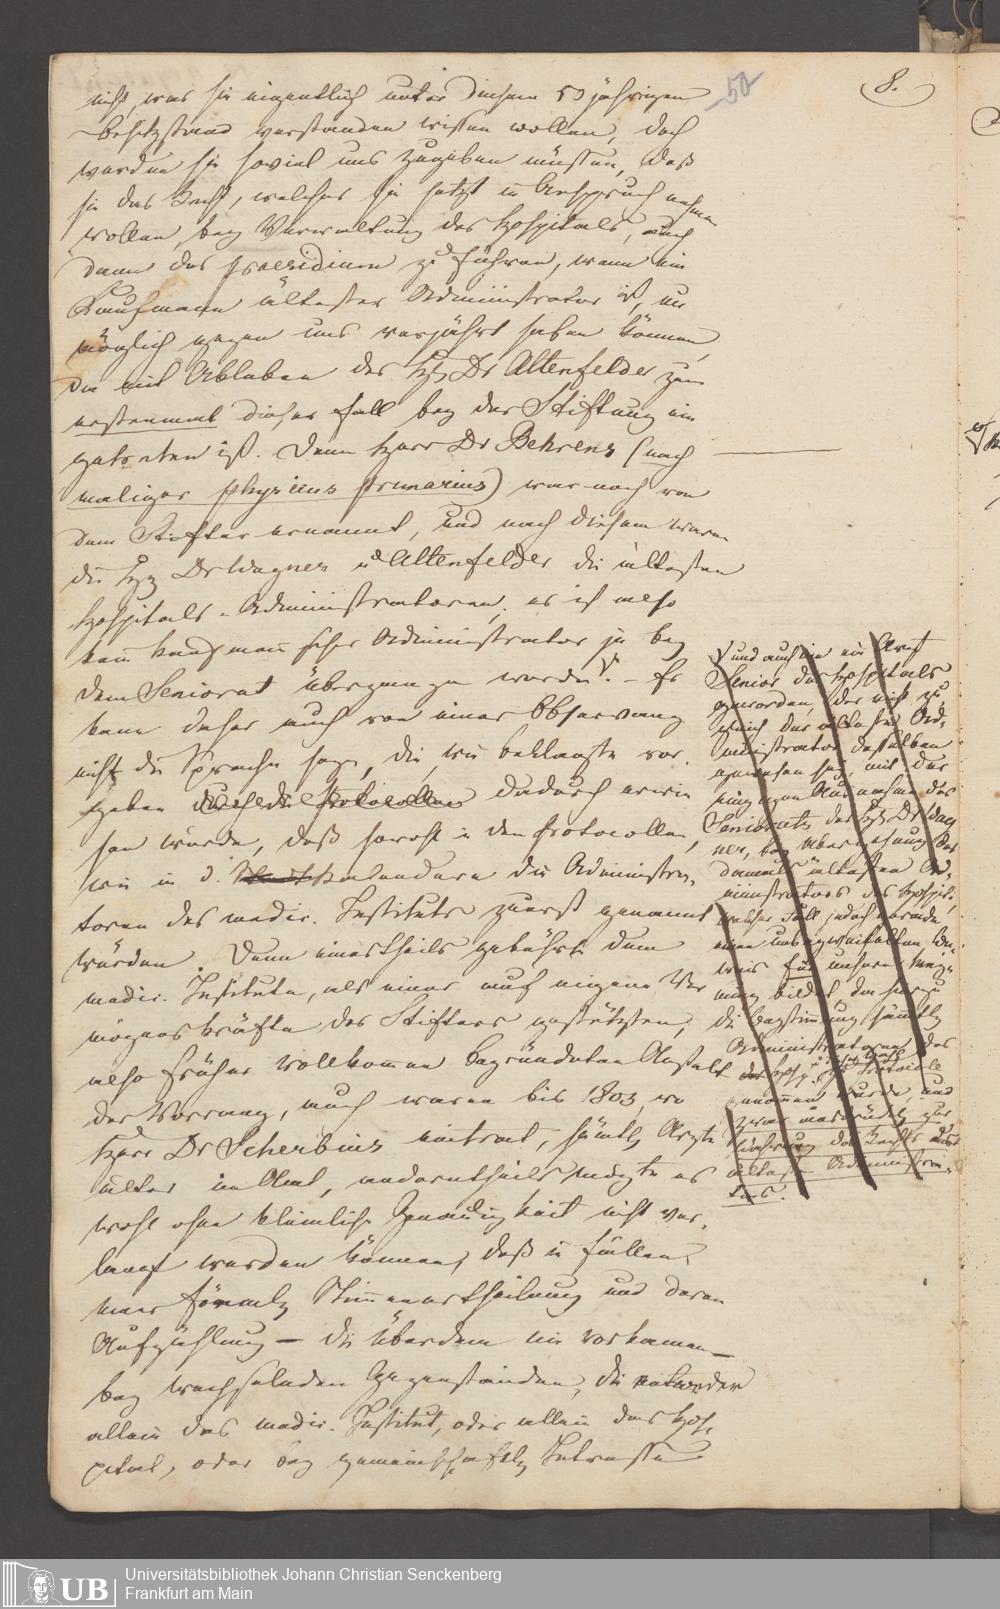 8.
50
nicht, was sie eigentlich unter diesem 53 jährigen
Besitzstand verstanden wissen wollen, doch
werden sie soviel uns zugeben müssen, daß
sie das Recht, welches sie jetzt in Anspruch nehmen
wollen, bey Verwaltung des Hospitals, auch
dann das Praesidium zu führen, wenn ein
Kaufmann ältester Administrator ist, un
möglich gegen uns verjährt haben können,
da mit Ableben des H. Dr Altenfelder zum
erstenmal dieser Fall bey der Stiftung ein
getreten ist. Denn Herr Dr Behrens (nach
maliger Physicus primarius) war noch von
dem Stifter ernannt, und nach diesem waren
die HH Dr Wagner u Altenfelder die ältesten
Hospitals-Administratoren; es ist also
kein kaufmännischer Administrator je bey
dem Seniorat übergangen worden. – Es
kann daher auch von einer Observanz
nicht die Sprache seyn, die, wie Beklagte vor
geben durch die Protocolle dadurch erwie
sen würde, daß sowohl in den Protocollen,
wie in d. Kalendern die Administra,
toren des medic. Instituts zuerst genannt
würden. Denn einestheils gebührt dem
medic. Institute, als einer auf eigene Ver
mögenskräfte des Stifters gestützten,
also früher vollkommen begründeten Anstalt
der Vorrang, auch waren bis 1803, wo
Herr Dr Scherbius eintrat, sämtl. Ärzte
älter im Amt, anderntheils mögte es
wohl ohne kleinliche Genauigkeit nicht ver,
langt werden können, daß in Fällen,
wenn förmlich Stimmenertheilung und deren
Aufzählung – die überdem nie vorkamen –
bey wechselnden Gegenständen, die entweder
allein das medic. Institut, oder allein das Hos,
pital, oder bey gemeinschaftl. Interesse
und auch nie ein Arzt
Senior des Hospitals
geworden, der nicht zu,
gleich der älteste Ad,
ministrator desselben
gewesen sey, mit der
einzigen Ausnahme des
Seniorats des H. Dr Wag
ner, bey Übergehung des
damals ältesten Ad,
ministrators des Hospit.,
welcher Fall jedoch gerade
einen unbezweifelten Be,
weis für unsere Mey,
nung bildet, da hierzu
die Beystimmung sämtl.
Administratoren des
Hosp. zu Protocolle
genommen wurde, und
zwar ausdrückl. zur
Wahrung des Rechts des
ältesten Administra,
tors.
Universitätsbibliothek Johann Christian Senckenberg
Frankfurt am Main
UB